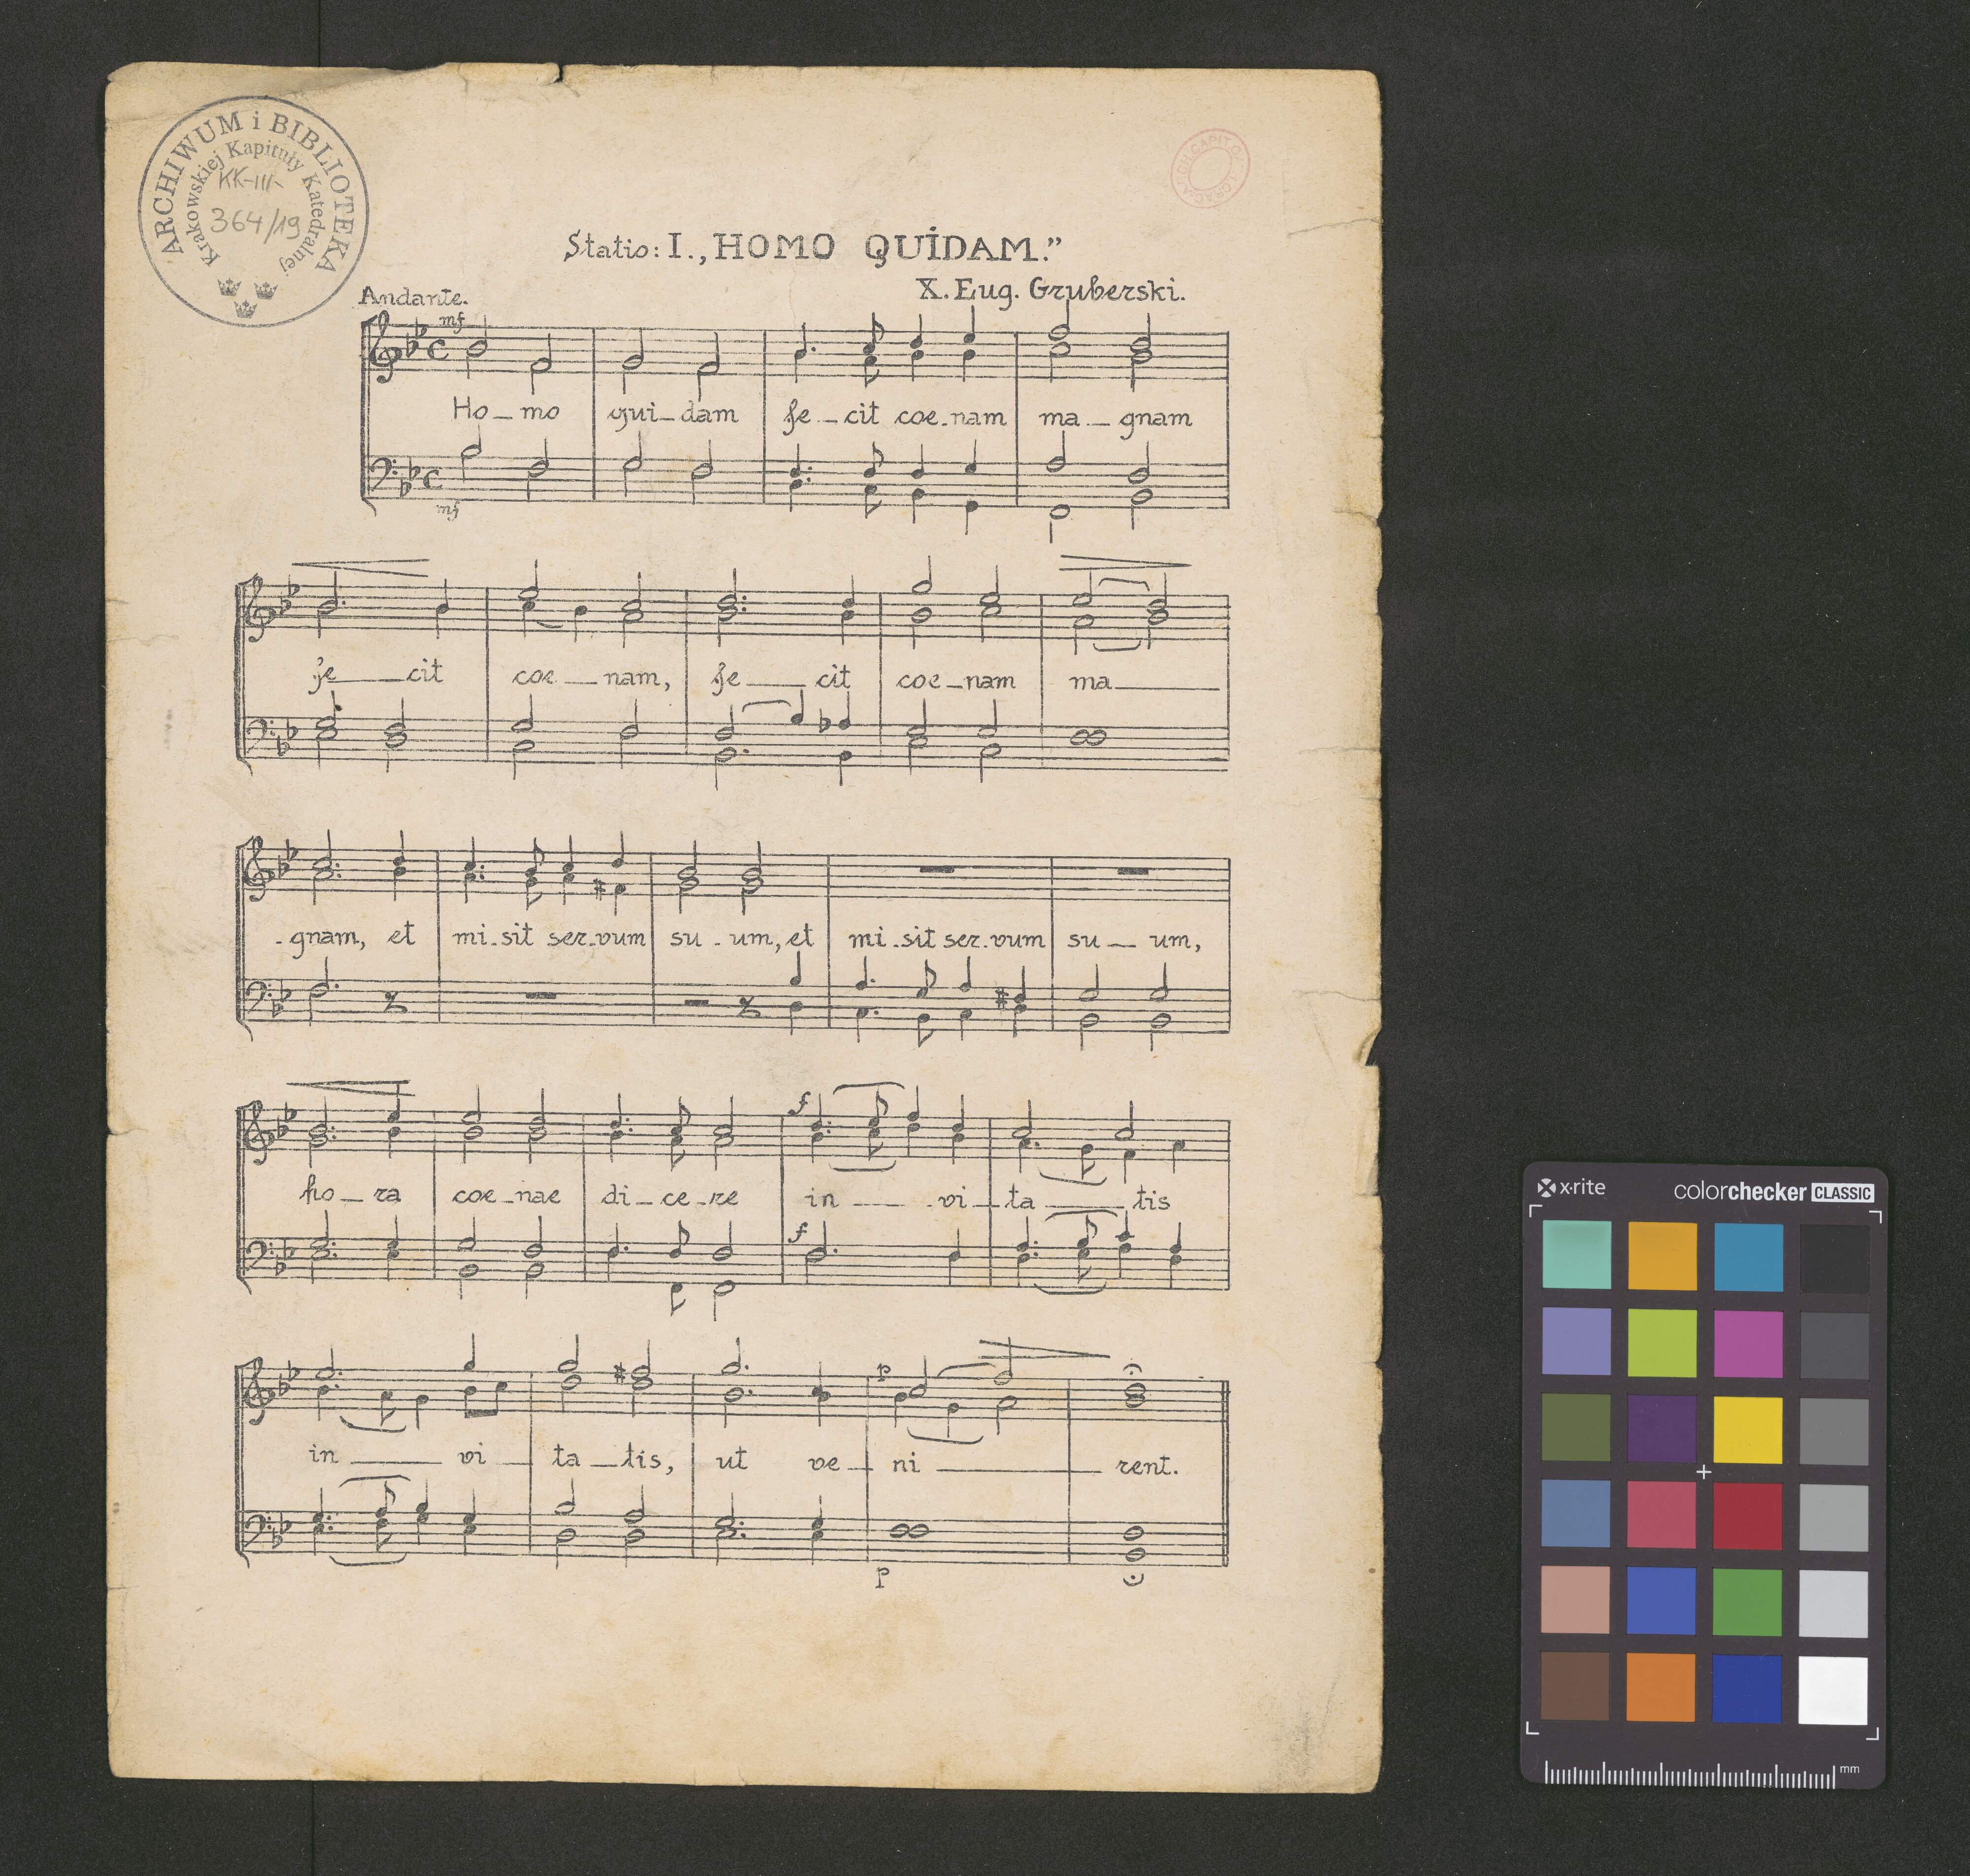 ARCHIWUM i BIBLIOTEKA
Krakowskiej Kapituły Katedralnej
KK-III-
364/19
Statio: I. „HOMO QUİDAM.”
X. Eug. Gruberski.
Andante.
mf
Ho_mo qui_dam fe_cit coe_nam ma_gnam
mf
fe_cit coe_nam, fe_cit coe_nam ma_
-gnam, et mi-sit ser-vum su-um, et mi-sit ser-vum su_um,
f
ho_ra coe_nae di_ce_re in_vi_ta_tis
f
p
in_vi_ta_tis, ut ve_ni_rent.
p
x·rite
colorchecker CLASSIC
mm